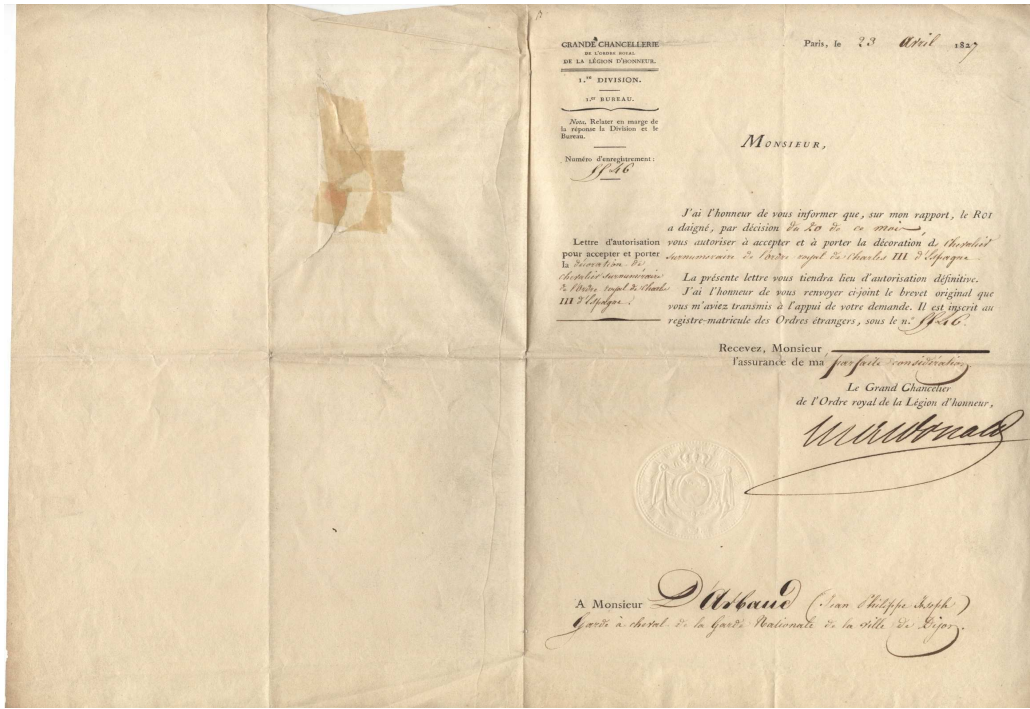 GRANDE CHANCELLERIE
DE L'ORDRE ROYAL
DE LA LÉGION D'HONNEUR.
1.re DIVISION.
1.er BUREAU.
Nota. Relater en marge de
la réponse la Division et le
Bureau.
Numéro d'enregistrement :
Lettre d'autorisation
pour accepter et porter
la décoration de
chevalier surnuméraire
de l'Ordre royal de Charles
III d'Espagne.
Paris, le 23 Avril 1827
MONSIEUR,
J'ai l'honneur de vous informer que, sur mon rapport, le ROI
a daigné, par décision du 20 de ce mois,
vous autoriser à accepter et à porter la décoration de chevalier
surnuméraire de l'ordre royal de Charles III d'Espagne.
La présente lettre vous tiendra lieu d'autorisation définitive.
J'ai l'honneur de vous renvoyer ci-joint le brevet original que
vous m'aviez transmis à l'appui de votre demande. Il est inscrit au
registre-matricule des Ordres étrangers, sous le n.°
Recevez, Monsieur
l'assurance de ma parfaite considération
Le Grand Chancelier
de l'Ordre royal de la Légion d'honneur,
Macdonald
A Monsieur D'Arbaud (Jean Philippe Joseph)
Garde à cheval de la Garde Nationale de la ville de Dijon.